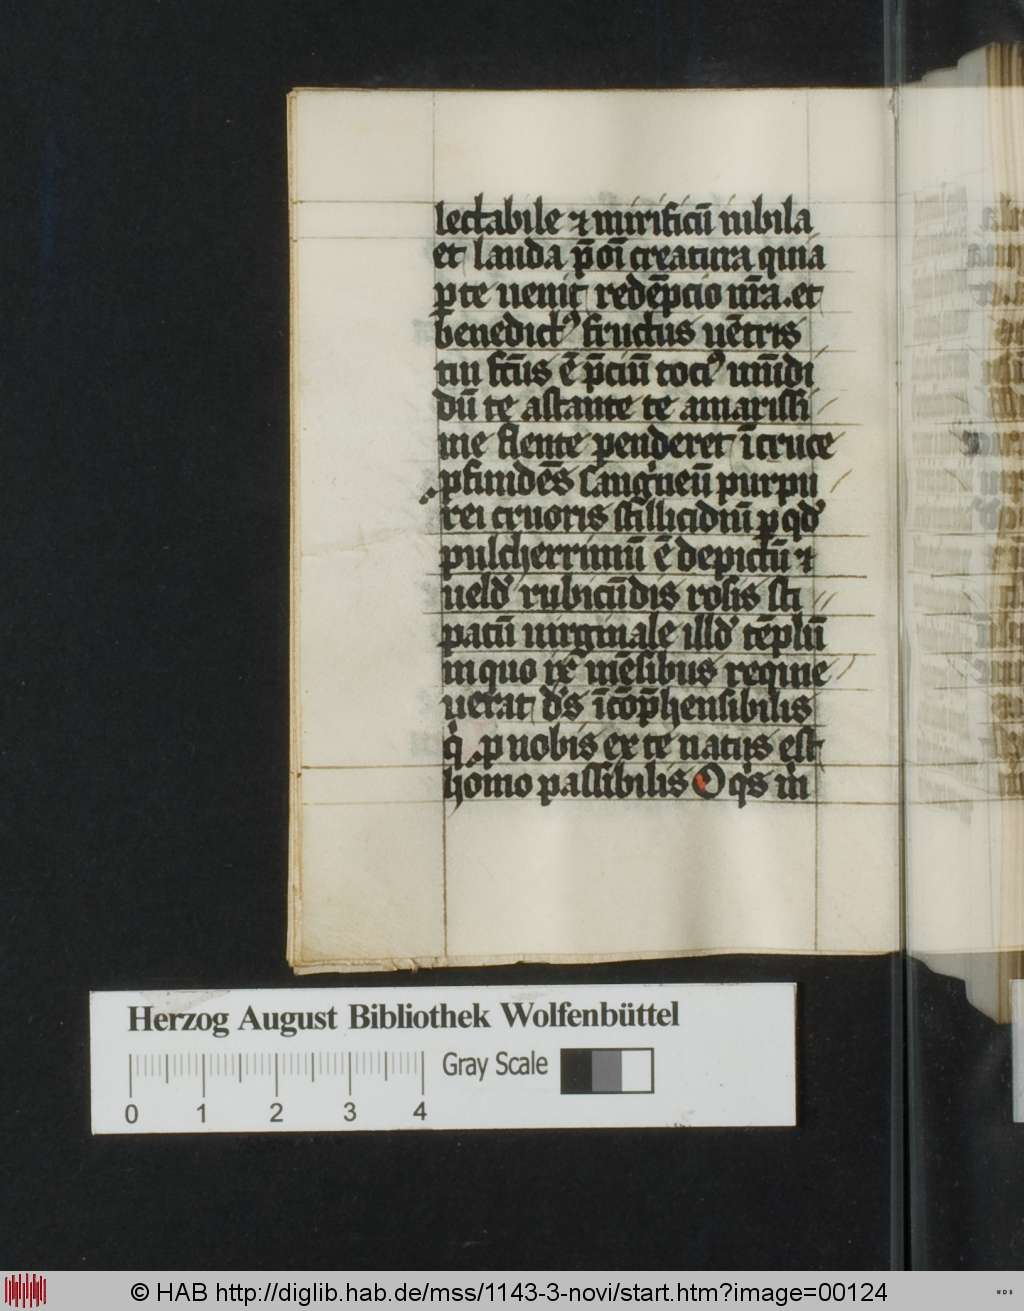 lectabile ⁊ mirificū iubila
et lauda p̄ oī creatura quia
ꝑ te uenit redēpcio nr̄a. et
benedictꝰ fructus uētris
tui fct̄us ē p̄ciū tociꝰ mūdi
dū te astante te amarissi
me flente penderet ī cruce
ꝓfundēs sanguineū purpu
rei cruoris stillicidiū ꝑ qd̓
pulcherrimū ē depictū ⁊
uelud̓ rubicūdis rosis sti
patū uirginale illd̓ tēplū
in quo ix mēsibus requie
uerat dn̄s īcōp̄hensibilis
qͥ ꝓ nobis ex te natus est
homo passibilis O qͣs in
Herzog August Bibliothek Wolfenbüttel
Gray Scale
0 1 2 3 4
© HAB http://diglib.hab.de/mss/1143-3-novi/start.htm?image=00124